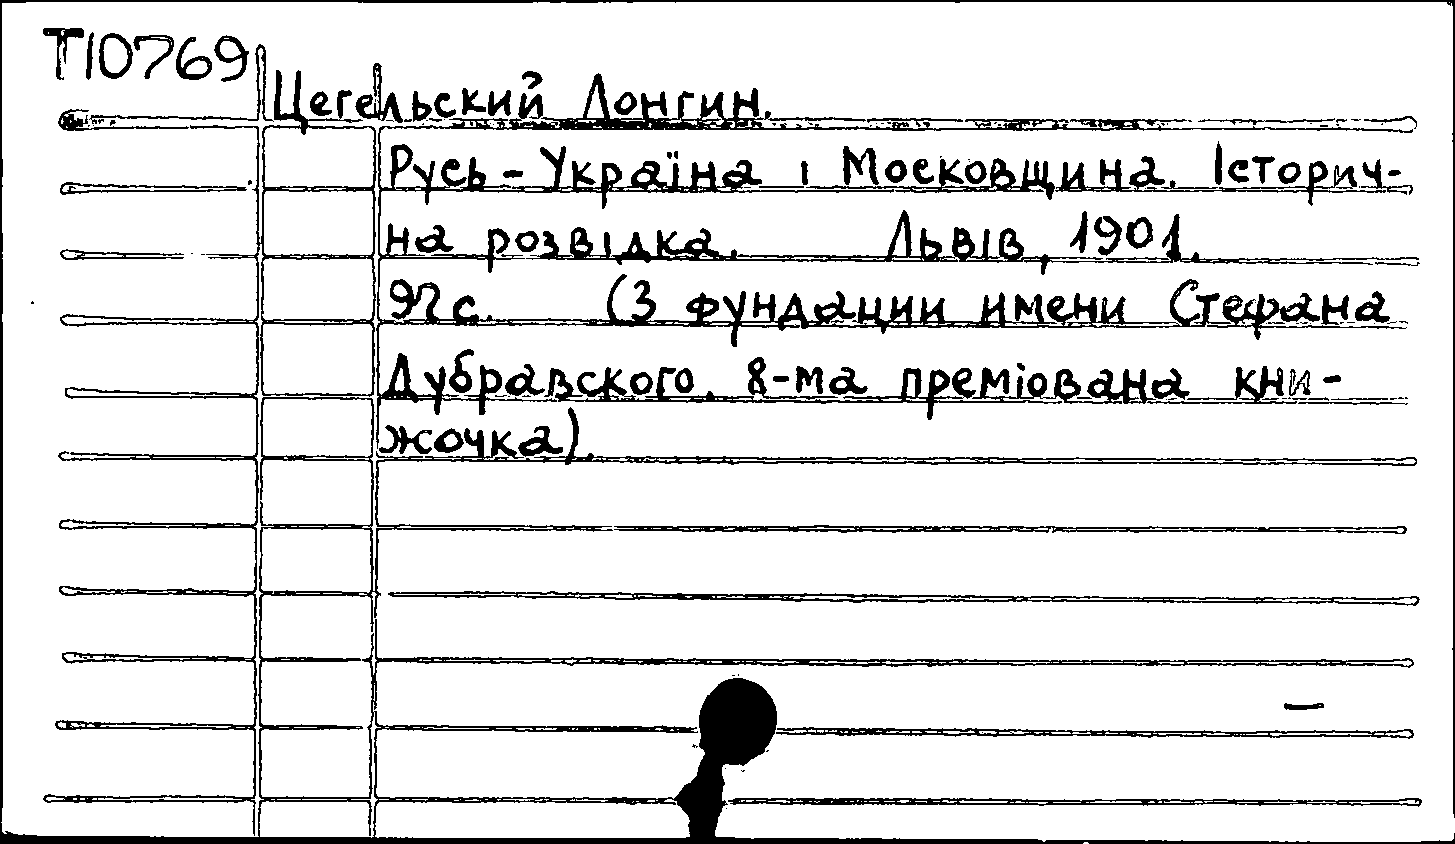 Т10769
Цегельский Лонгин.
Русь-Україна і Московщина. Історич-
на розвідка. Львів, 1901.
97 с. (З фундации имени Стефана
Дубравского. 8-ма преміована кни-
жочка).